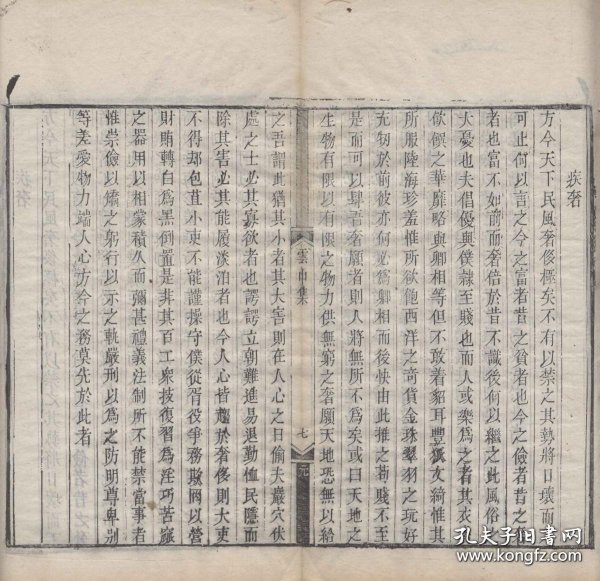 疾奢
方今天下民風奢侈極矣不有以禁之其勢將日壞而不
可止何以言之今之富者昔之貧者也今之儉者昔之奢
者也富不如前而奢倍於昔不識後何以繼之此風俗之
大憂也夫倡優與僕隸至賤也而人或樂為之者其衣服
飲饌之華靡略與卿相等但不敢着貂耳豐狐文綺惟其
所服陸海珍羞惟所欲飽西洋之奇貨金珠翠羽之玩好
充牣於前彼亦何必為卿相而後快由此推之苟賤不至
是而可以肆吾奢願者則人將無所不為矣或曰天地之
生物有限以有限之物力供無窮之奢願天地恐無以給
之吾謂此猶其小者其大害則在人心之日偷夫巖穴伏
處之士必其寡欲者也諤諤立朝難進易退勤恤民隱而
除其害必其能履淡泊者也今人心皆趨於奢侈則大吏
不得却包苴小吏不能謹操守僕從胥役爭務欺罔以營
財賄轉白為黑倒置是非其百工眾技復習為淫巧苦窳
之器用以相蒙積久而彌甚禮義法制所不能禁當事者
惟崇儉以矯之躬行以示之軌嚴刑以為之防明尊卑別
等差愛物力端人心方今之務莫先於此者
雲山集
七
元
孔夫子旧書网
www.kongfz.com